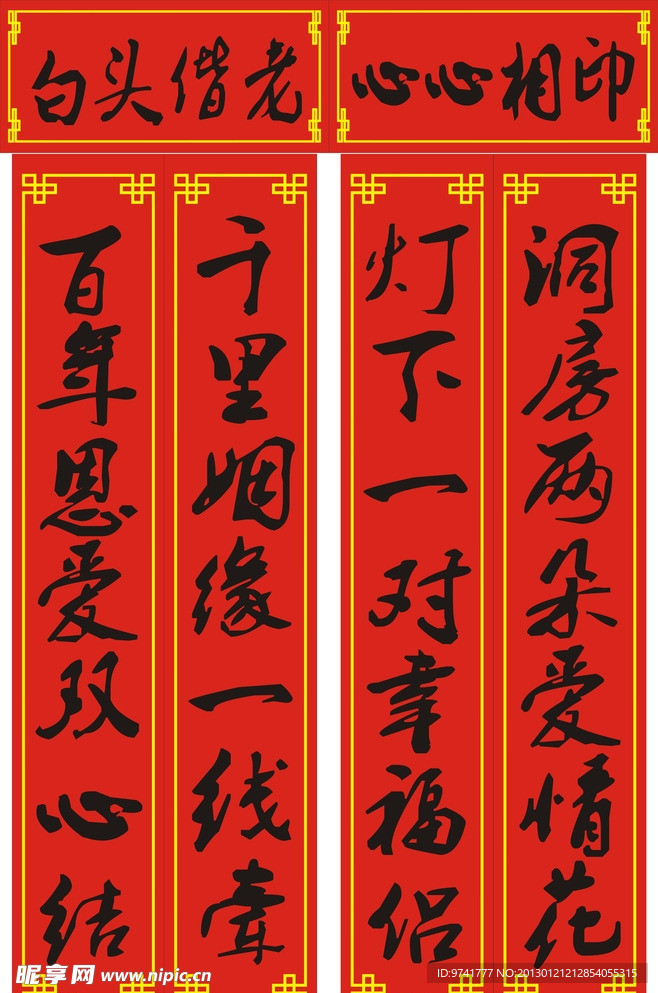 白头偕老
心心相印
百年恩爱双心结
千里姻缘一线牵
灯下一对幸福侣
洞房两朵爱情花
昵享网 www.nipic.cn
ID:9741777 NO:20130121212854055315